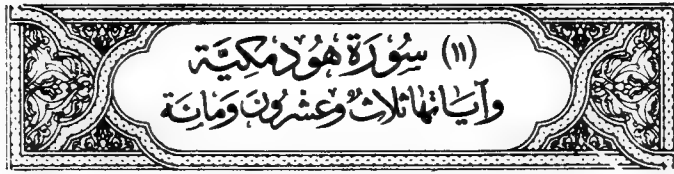 (١١) سُورَة هُود مَكيَّة
وَآيَاتهَا ثلاثٌ وَعشرُونَ وَمَائة